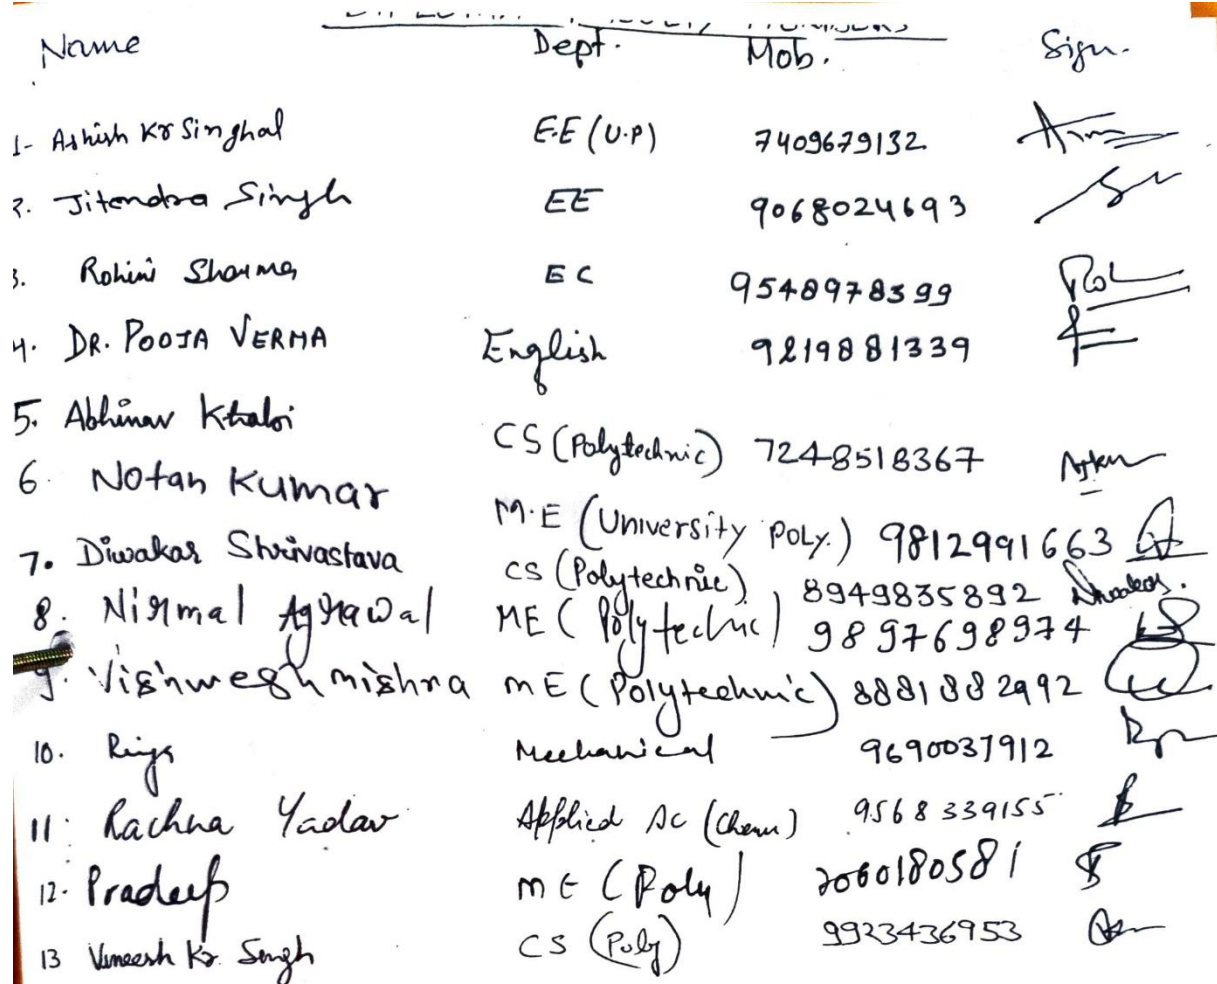 Name Dept. Mob. Sign.
1- Ashish Kr Singhal E.E (U.P) 7409679132
2. Jitendra Singh EE 9068024693
3. Rohini Sharma EC 9548978399
4. DR. POOJA VERMA English 9219881339
5. Abhinav CS (Polytechnic) 7248518367
6. Notan Kumar M.E (University Poly.) 9812991663
7. Diwakar Shrivastava CS (Polytechnic) 8949835892
8. Nirmal Agrawal ME (Polytechnic) 9897698974
9. Vishwesh mishra mE (Polytechnic) 8881882992
10. Mechanical 9690037912
11. Rachna Yadav Applied Sc (Chem) 9568339155
12. Pradeep mE (Poly)
13 Vineesh Kr. Singh CS (Poly) 9923436953